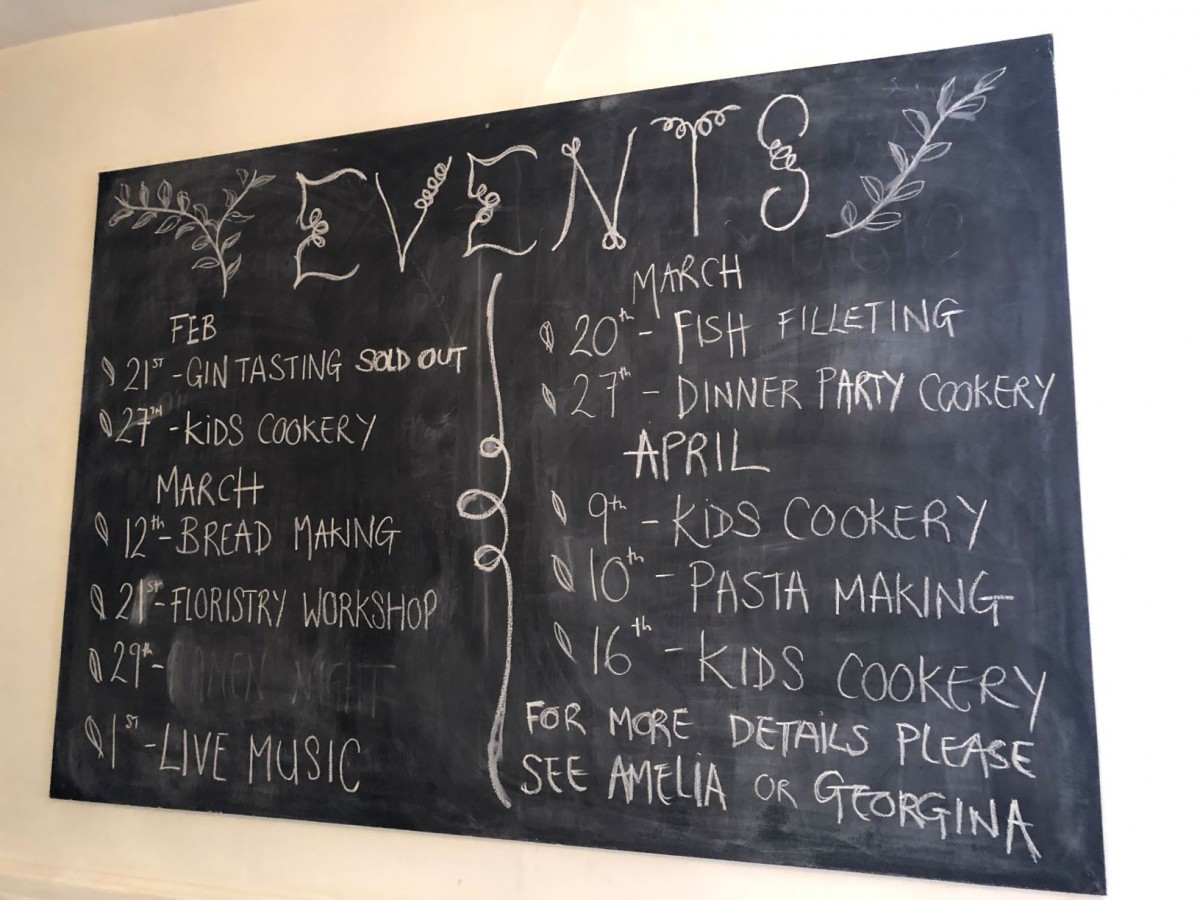 EVENTS
FEB
21ST - GIN TASTING SOLD OUT
27TH - KiDS COOKERY
MARCH
12th - BREAD MAKING
21ST - FLORISTRY WORKSHOP
29th - RAMEN NIGHT
1ST - LIVE MUSIC
MARCH
20th - FISH FILLETING
27th - DINNER PARTY COOKERY
APRIL
9th - KiDS COOKERY
10th - PASTA MAKING
16th - KIDS COOKERY
FOR MORE DETAILS PLEASE
SEE AMELIA OR GEORGINA